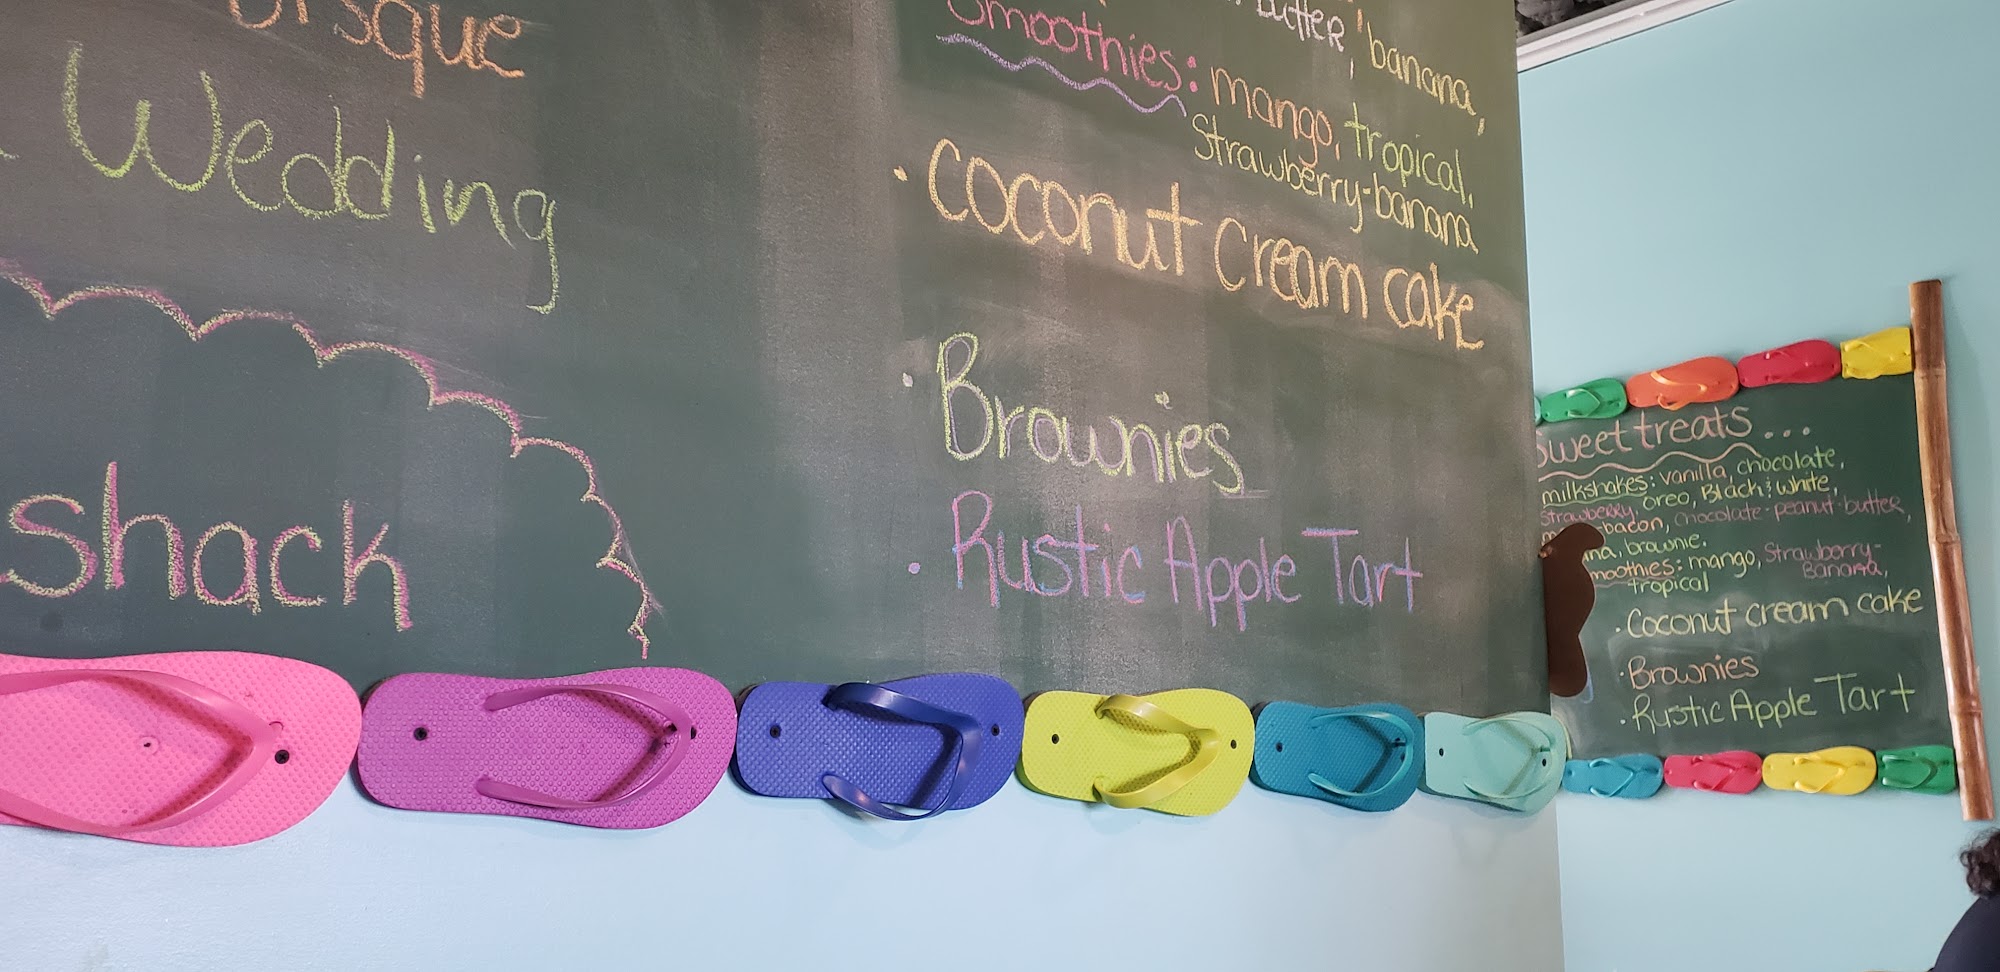 Wedding
shack
butter, banana,
Smoothies: mango, tropical,
Strawberry-banana
• Coconut cream cake
• Brownies
• Rustic Apple Tart
Sweet treats...
milkshakes: vanilla, chocolate,
Strawberry, oreo, Black & white,
-bacon, chocolate-peanut-butter,
brownie.
moothies: mango, Strawberry-
Banana,
tropical
• Coconut cream cake
• Brownies
• Rustic Apple Tart